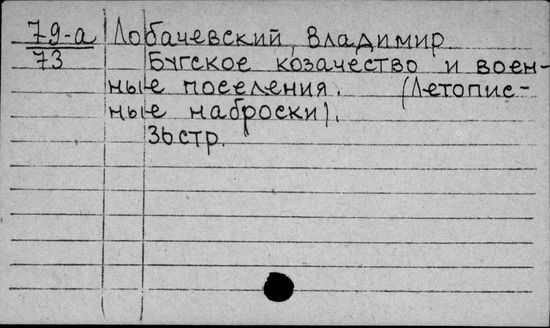 79-а Лобачевский, Владимир
73 Бугское козачество и воен-
ные поселения. (Летопис-
ные наброски).
36стр.